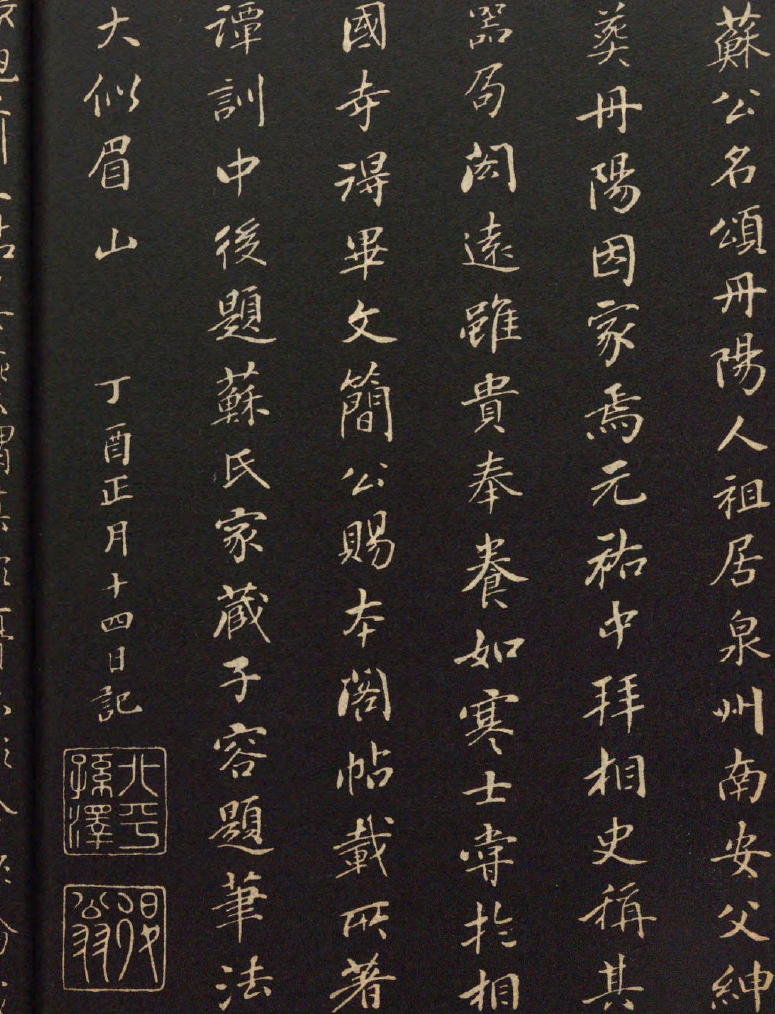 蘇公名頌丹陽人祖居泉州南安父紳
葬丹陽因家焉元祐中拜相史稱其
器局閎遠雖貴奉養如寒士嘗於相
國寺得畢文簡公賜本閣帖載所著
譚訓中後題蘇氏家藏子容題筆法
大似眉山
丁酉正月十四日記
北平孫澤
退翁